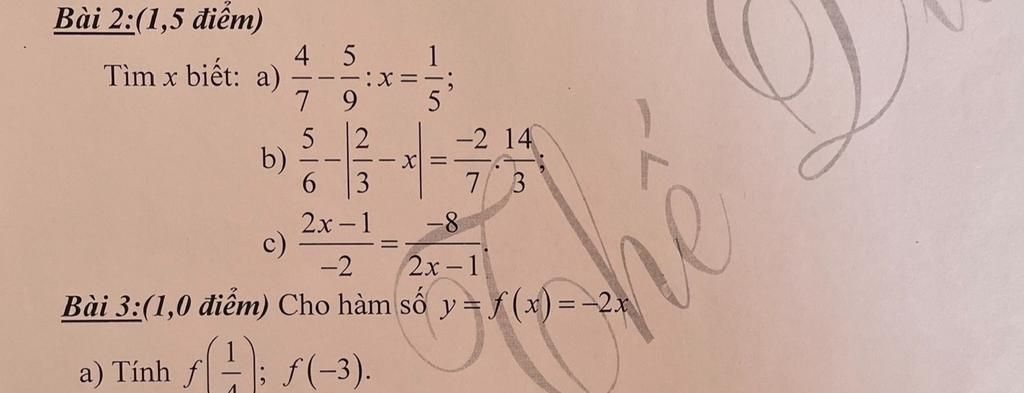 Bài 2:(1,5 điểm)
Tìm x biết: a) 4/7 − 5/9 : x = 1/5;
b) 5/6 − |2/3 − x| = −2/7 . 14/3;
c) (2x − 1)/−2 = −8/(2x − 1).
Bài 3:(1,0 điểm) Cho hàm số y = f(x) = −2x
a) Tính f(1/4); f(−3).
Thế